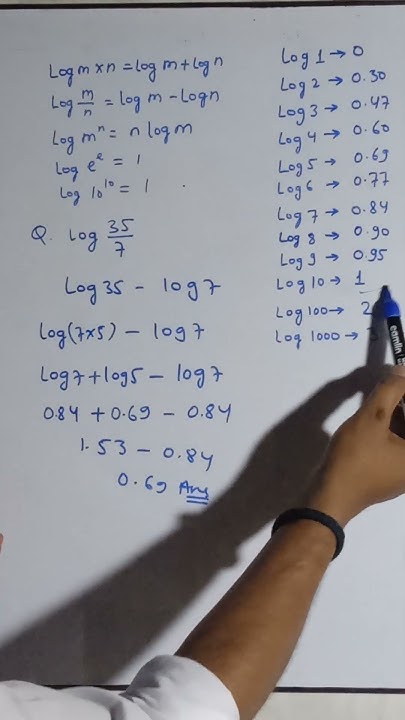 Log m x n = log m + log n
Log m/n = log m - log n
Log mⁿ = n log m
Log eᵉ = 1
Log 10¹⁰ = 1
Q. log 35/7
Log 35 - log 7
log(7x5) - log 7
log7 + log5 - log 7
0.84 + 0.69 - 0.84
1.53 - 0.84
0.69 Ans
Log 1 → 0
Log 2 → 0.30
Log 3 → 0.47
Log 4 → 0.60
Log 5 → 0.69
Log 6 → 0.77
Log 7 → 0.84
Log 8 → 0.90
Log 9 → 0.95
Log 10 → 1
Log 100 → 2
Log 1000 → 3
camlin